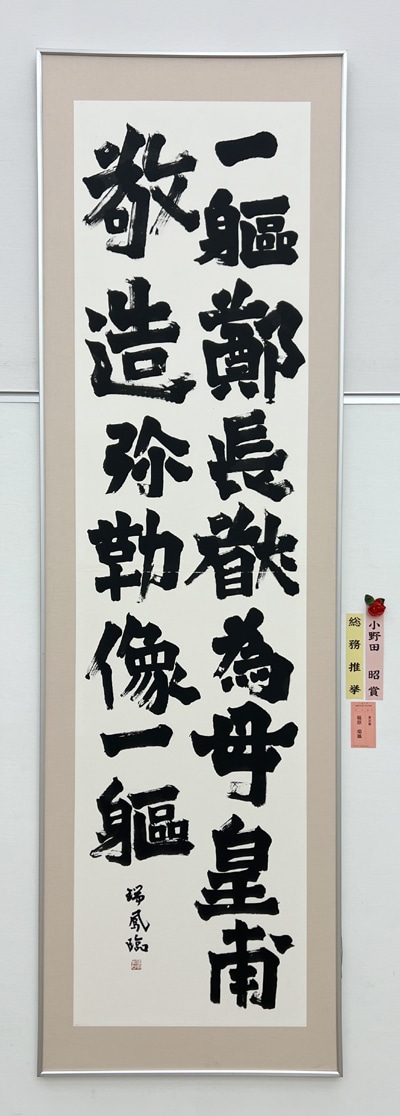 一軀鄭長猷為母皇甫
敬造弥勒像一軀
瑞鳳臨
小野田 昭賞
総務推挙